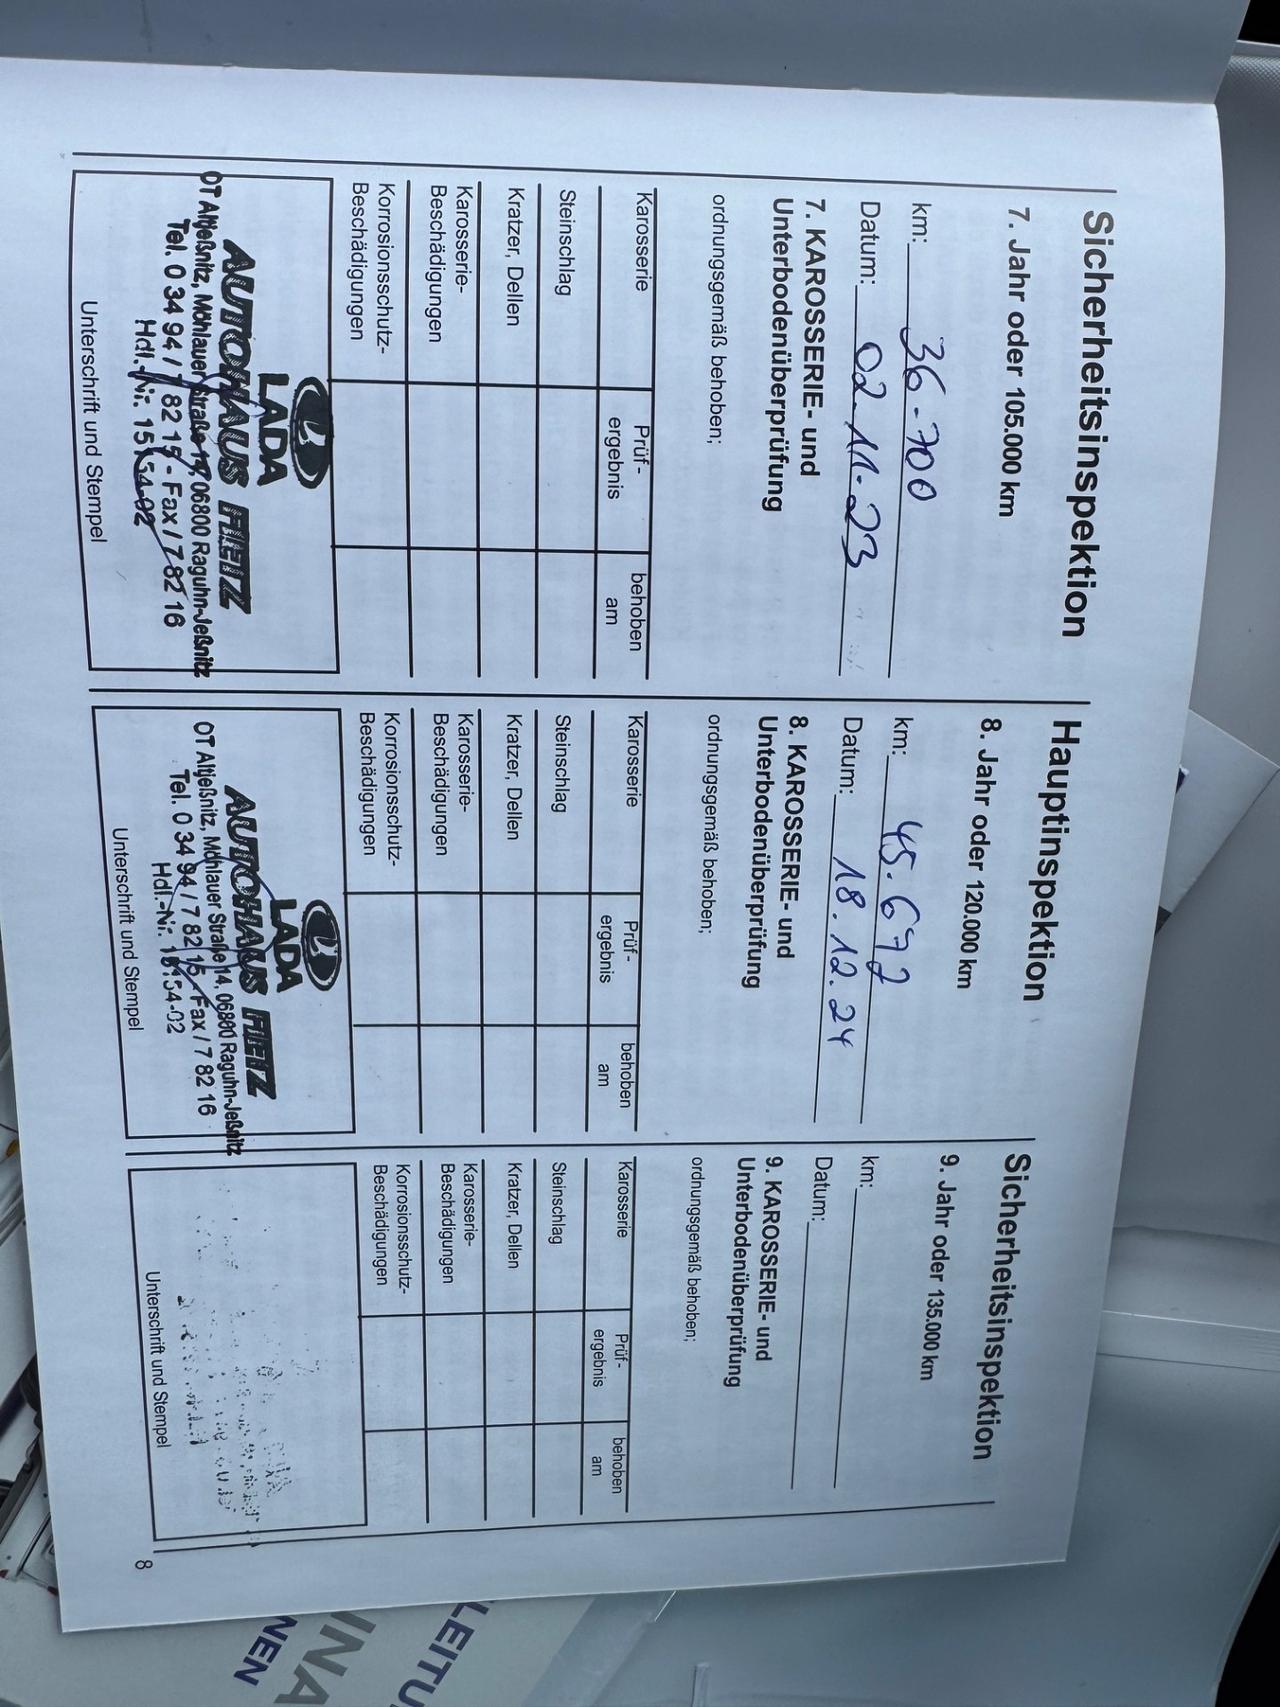 Sicherheitsinspektion
7. Jahr oder 105.000 km
km: 36.700
Datum: 02.11.23
7. KAROSSERIE- und
Unterbodenüberprüfung
ordnungsgemäß behoben;
Karosserie Prüf- behoben
ergebnis am
Steinschlag
Kratzer, Dellen
Karosserie-
Beschädigungen
Korrosionsschutz-
Beschädigungen
LADA
AUTOHAUS HEIZ
OT Altjeßnitz, Möhlauer Straße 14, 06800 Raguhn-Jeßnitz
Tel. 0 34 94 / 7 82 15 - Fax / 7 82 16
Hdl.-Nr. 15154-02
Unterschrift und Stempel
Hauptinspektion
8. Jahr oder 120.000 km
km: 45.672
Datum: 18.12.24
8. KAROSSERIE- und
Unterbodenüberprüfung
ordnungsgemäß behoben;
Karosserie Prüf- behoben
ergebnis am
Steinschlag
Kratzer, Dellen
Karosserie-
Beschädigungen
Korrosionsschutz-
Beschädigungen
LADA
AUTOHAUS HEIZ
OT Altjeßnitz, Möhlauer Straße 14, 06800 Raguhn-Jeßnitz
Tel. 0 34 94 / 7 82 15 - Fax / 7 82 16
Hdl.-Nr. 15154-02
Unterschrift und Stempel
Sicherheitsinspektion
9. Jahr oder 135.000 km
km:
Datum:
9. KAROSSERIE- und
Unterbodenüberprüfung
ordnungsgemäß behoben;
Karosserie Prüf- behoben
ergebnis am
Steinschlag
Kratzer, Dellen
Karosserie-
Beschädigungen
Korrosionsschutz-
Beschädigungen
Unterschrift und Stempel
8
LEITU
INA
NEN